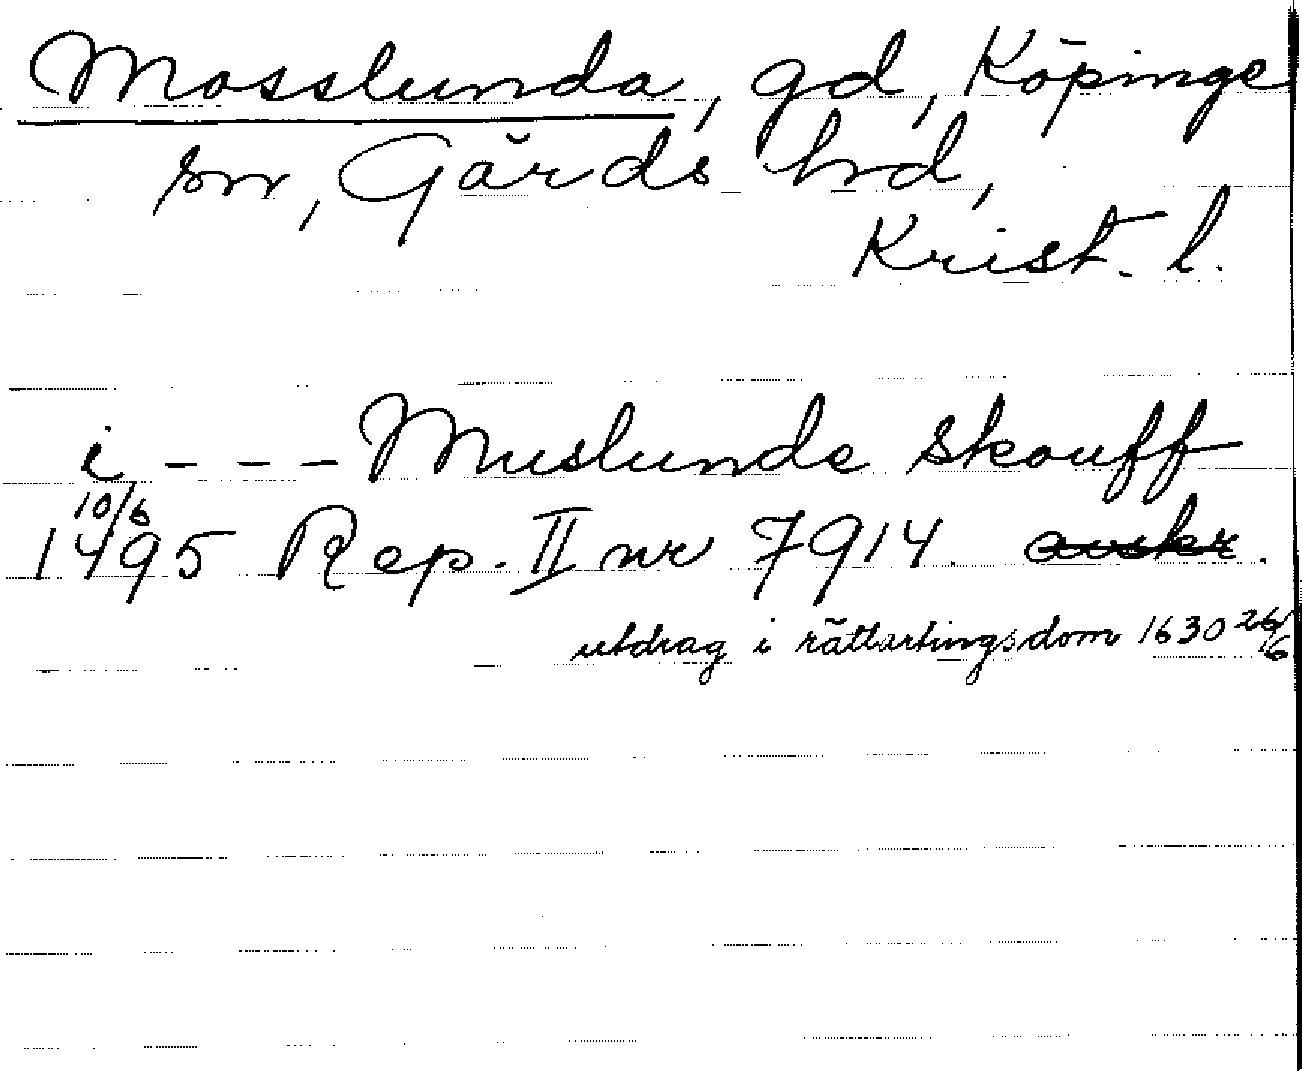 Mosslunda, gd, Köpinge
sn, Gärds hd,
Krist. l.
i - - - Muslunde skouff
10/6
1495 Rep. II nr 7914. avskr.
utdrag i rättartingsdom 1630 26/6